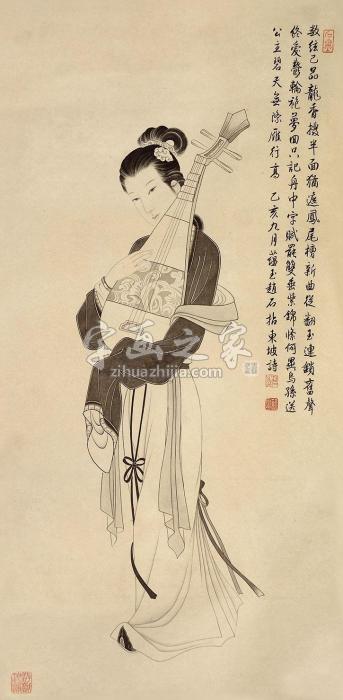 數絃已品龍香撥半面猶遮鳳尾槽新曲從翻玉連鎖舊聲
終愛鬱輪袍夢回只記舟中字賦罷雙垂紫錦絛何異烏孫送
公主碧天無際雁行高 乙亥九月 玉趙石拈東坡詩
字画之家
zihuazhijia.com